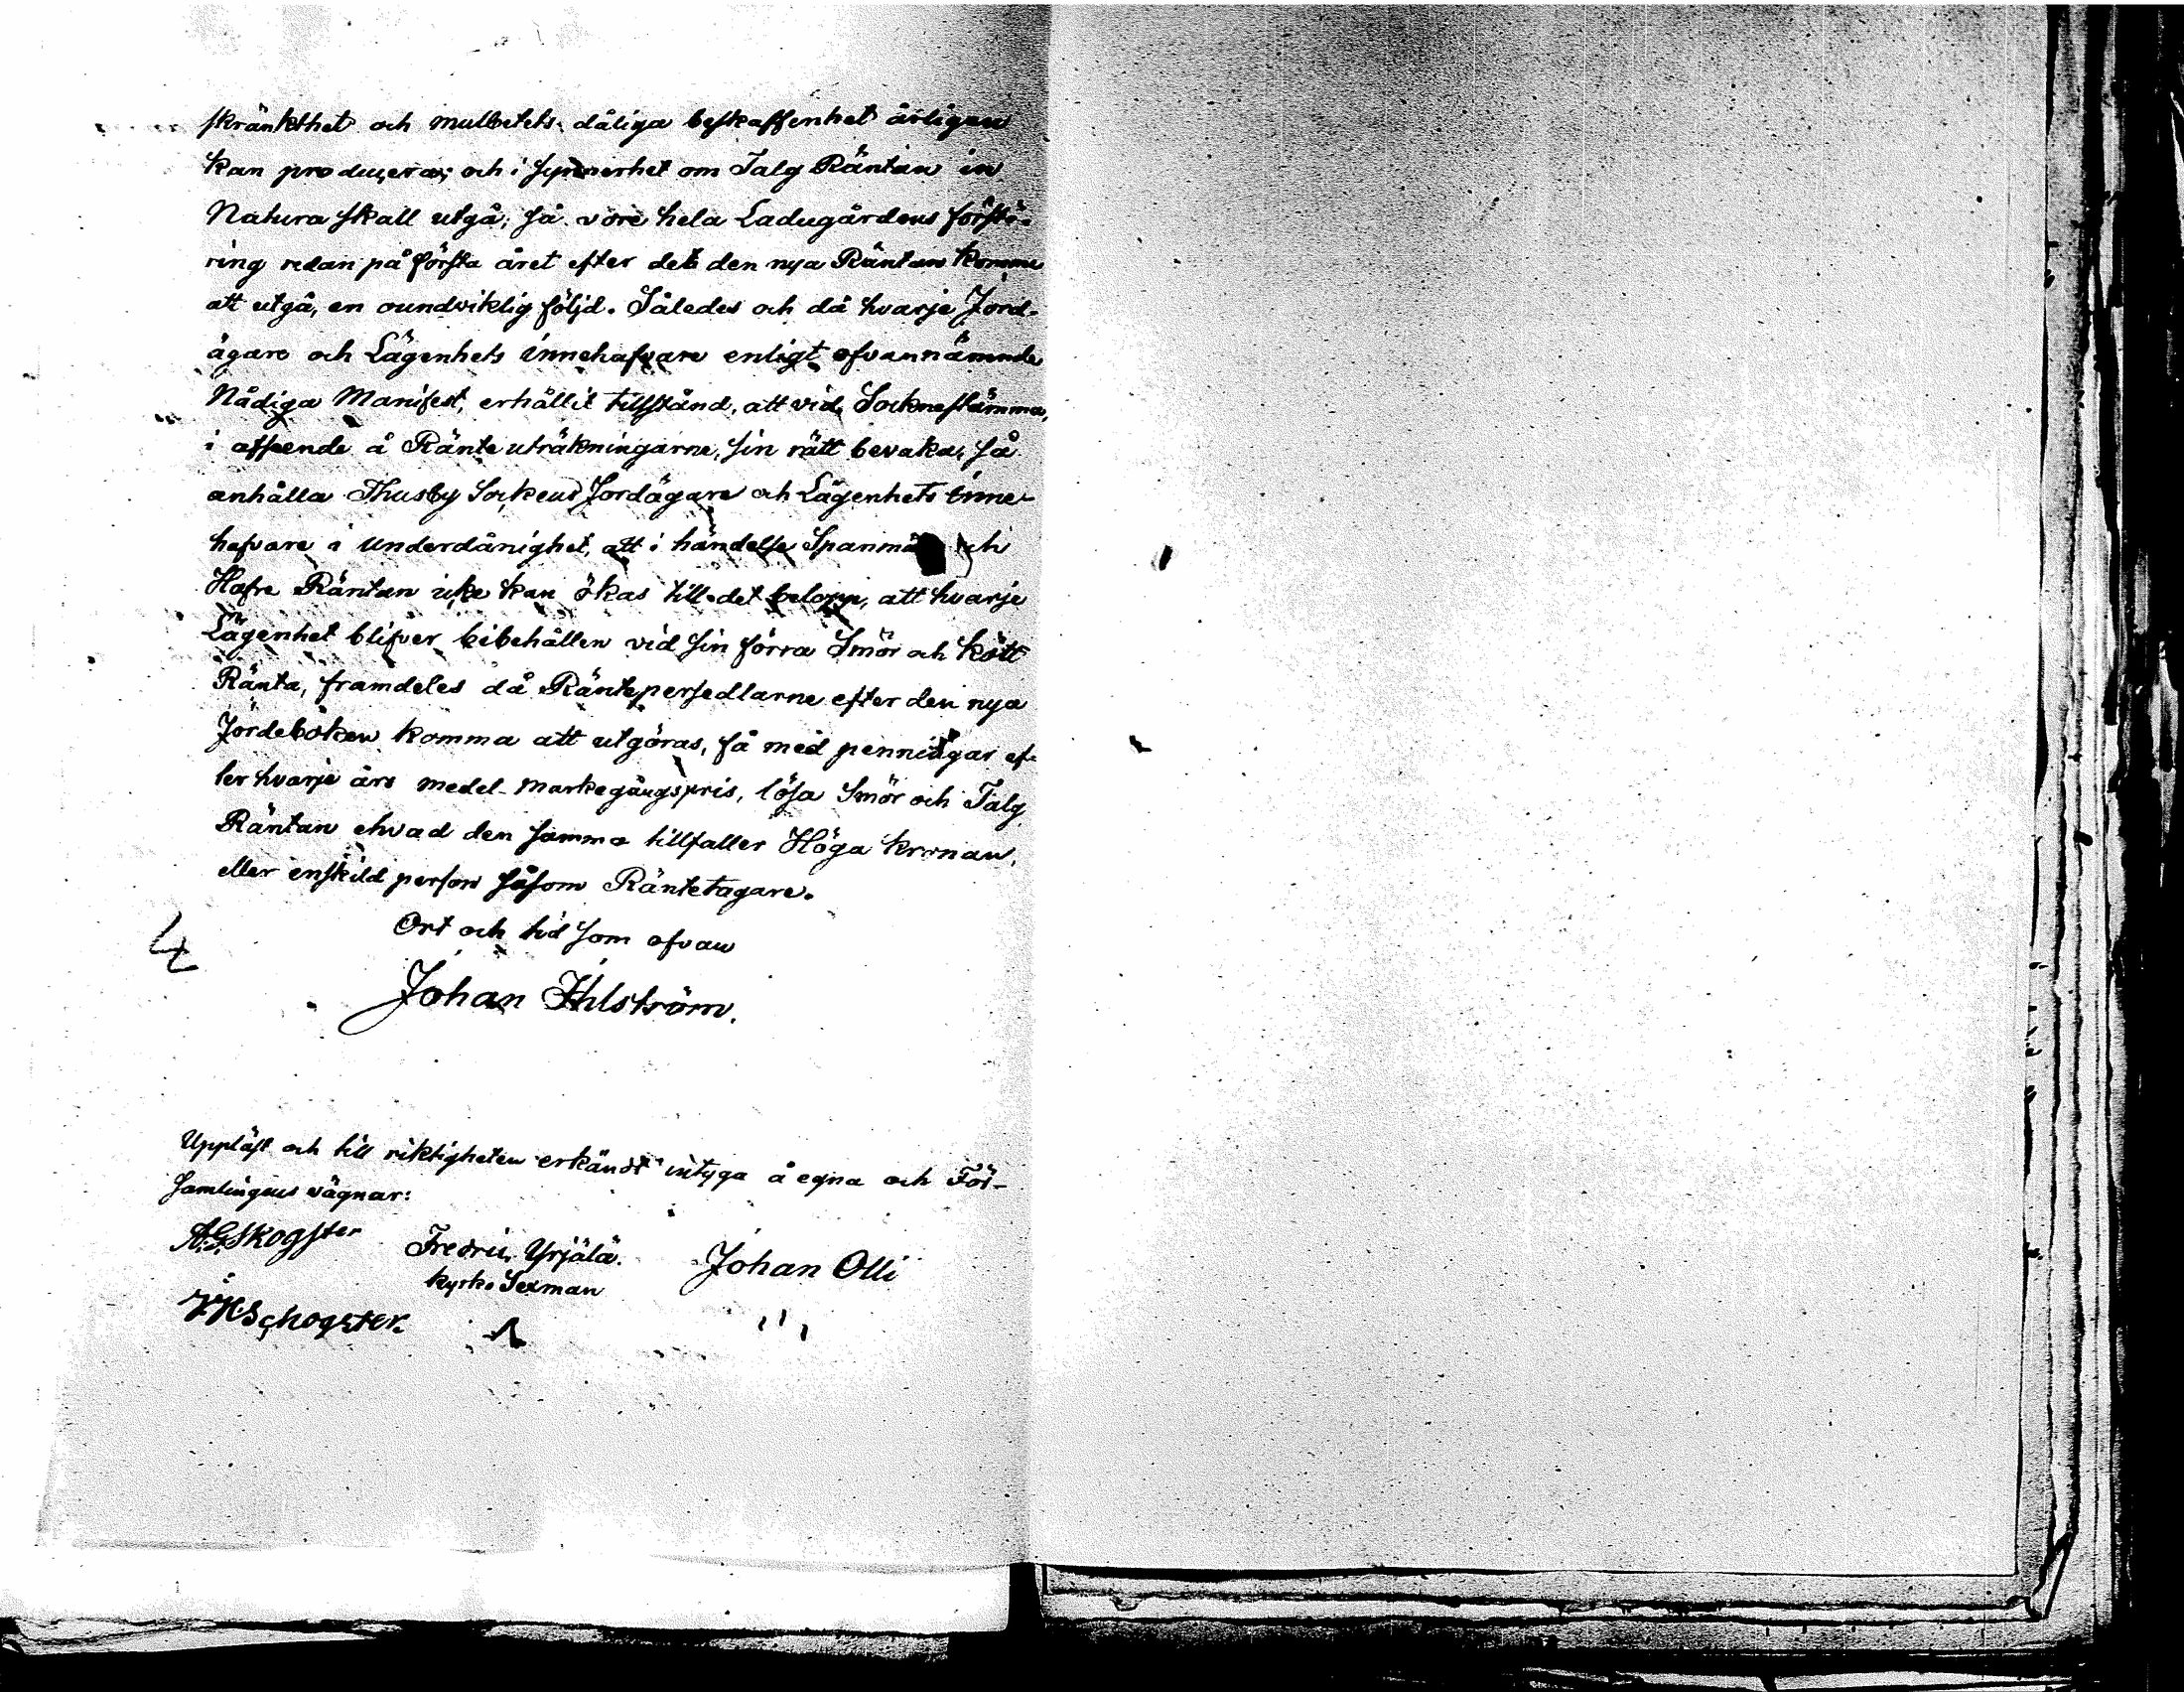 skränkthet och mulbetets dåliga beskaffenhet årligen
kan produceras; och i synnerhet om Talg Räntan in
Natura skall utgå; så vore hela Ladugårdens förstö-
ring redan på första året efter det den nya Räntan komme
att utgå, en oundviklig följd. Således och då hvarje Jord-
ägare och Lägenhets innehafvare enligt ofvannämnde
Nådiga Manifest, erhållit tillstånd, att vid Socknestämma,
i afseende å Ränte uträkningarne, sin rätt bevaka; så
anhålla Thusby Sockens Jordägare och Lägenhets inne-
hafvare i underdånighet, att i händelse Spanmåls och
Hafre Räntan icke kan ökas till det belopp, att hvarje
Lägenhet blifver bibehållen vid sin förra Smör och Kött
Ränta, framdeles då Räntepersedlarne efter den nya
Jordeboken komma att utgöras, få med penningar ef-
ter hvarje års medel-markegångspris, lösa Smör och Talg
Räntan ehvad den samma tillfaller Höga Kronan,
eller enskild person såsom Räntetagare.
Ort och tid som ofvan
4
Johan Ihlström.
Uppläst och till riktigheten erkändt intyga å egna och För-
samlingens vägnar:
A.G.Skogster Fredric Yrjälä. Johan Olli
kyrko Sexman
Schogster